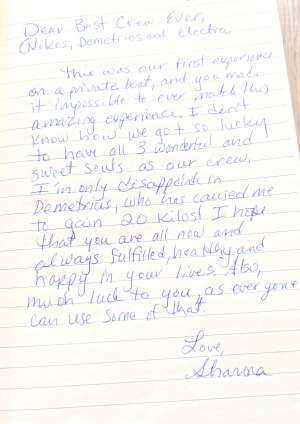 Dear Best Crew Ever,
Nikos, Demetrios and Electra,
This was our first experience
on a private boat, and you made
it impossible to ever match this
amazing experience. I don't
know how we got so lucky
to have all 3 wonderful and
sweet souls as our crew,
I'm only disappointed in
Demetrius, who has caused me
to gain 20 kilos! I hope
that you are all now and
always fulfilled, healthy and
happy in your lives. Also,
much luck to you, as everyone
can use some of that.
Love,